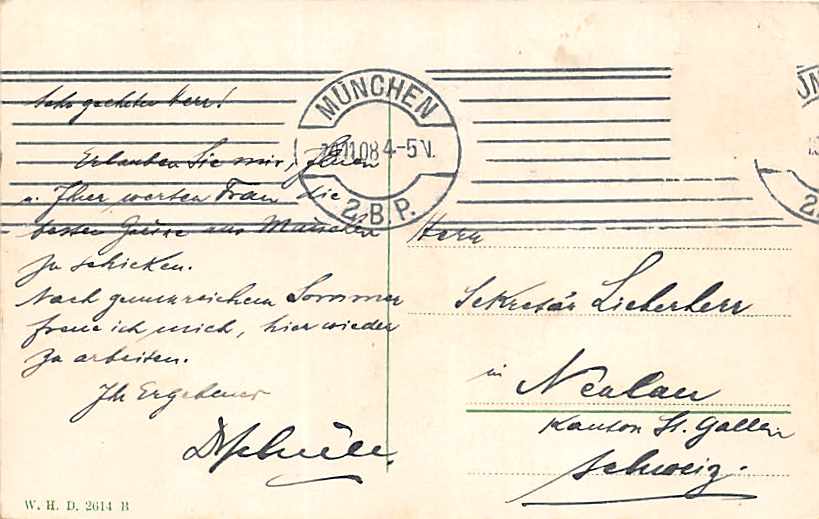 MÜNCHEN
11.08 4-5 V.
2.B.P.
Sehr geehrter Herr!
Erlauben Sie mir, Ihnen
u. Ihrer werten Frau die
besten Grüsse aus München
zu schicken.
Nach genussreichem Sommer
freue ich mich, hier wieder
zu arbeiten.
Ihr Ergebener
Herrn
Sekretär Lieberherr
in Neslau
Kanton St. Gallen
Schweiz.
W. H. D. 2614 B